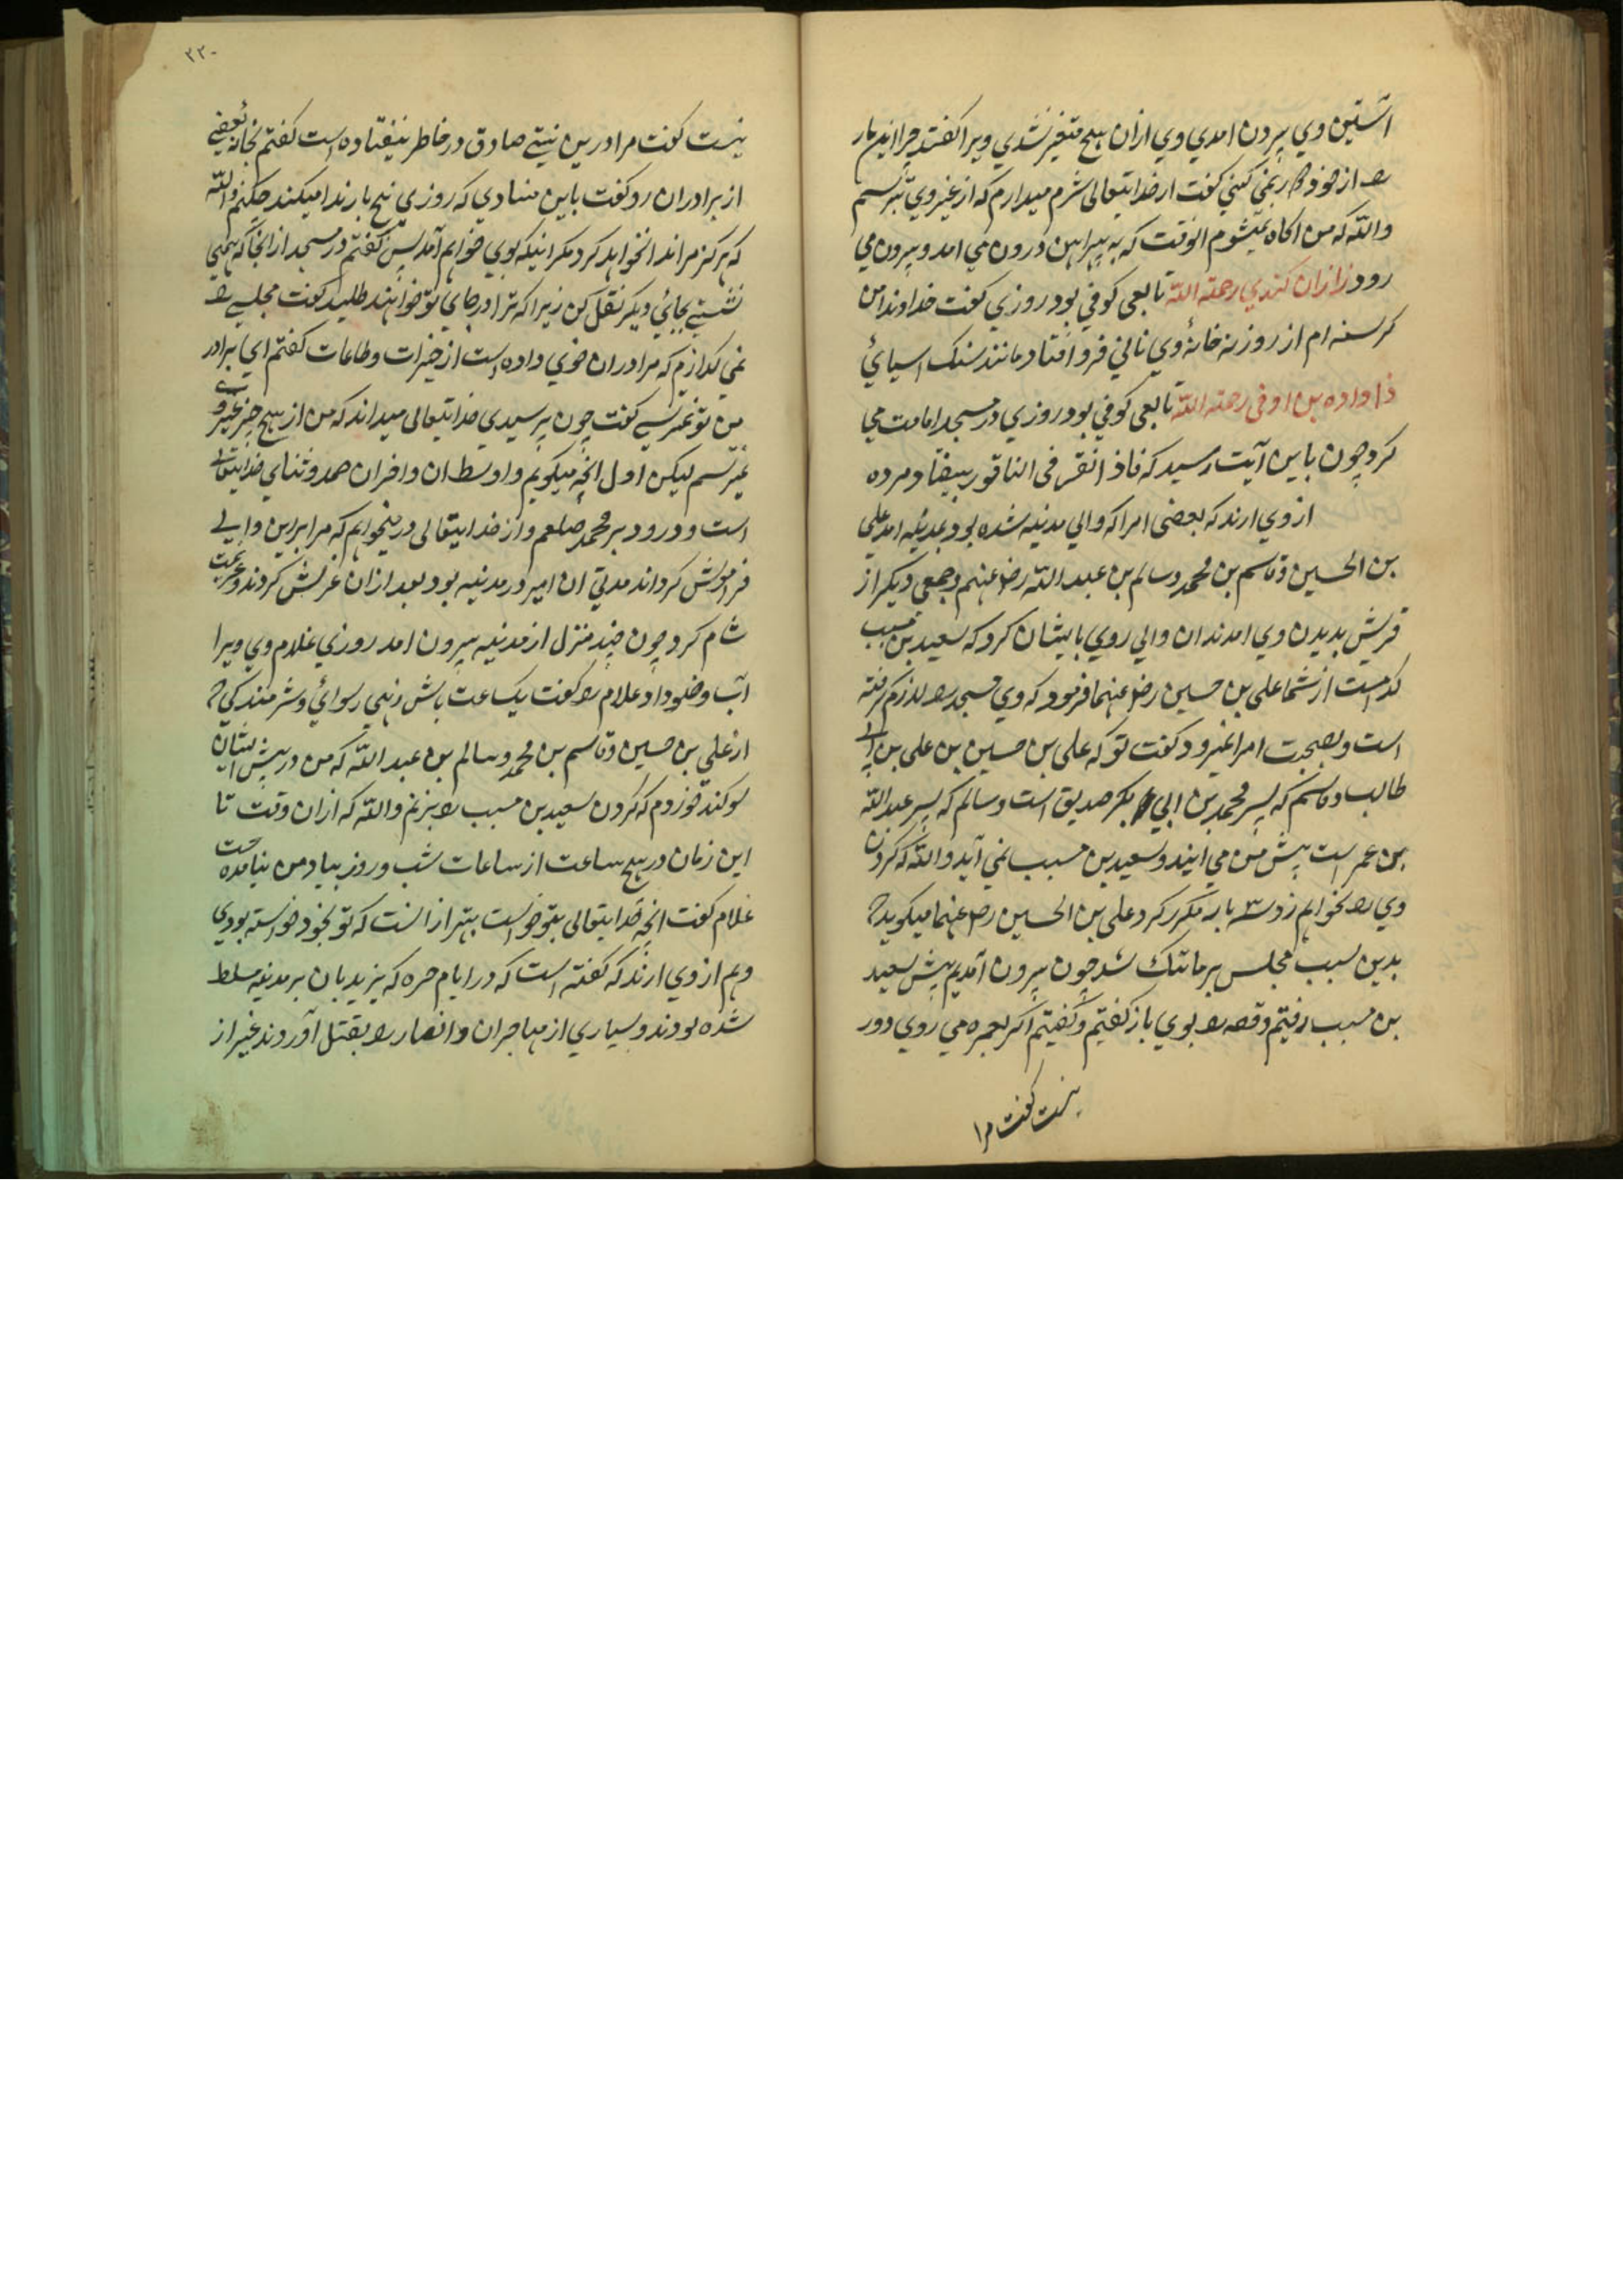 آستین وی بیرون امدی و وی ازان هیچ متغیر نشدی ویرا کفتند چرا این مار
را از خود دور نمی کنی کفت از خدایتعالی شرم میدارم که از غیر وی بترسم
والله که من اکاه نمیشوم انوقت که به پیراهن درون می امد و بیرون می
رود زازان کندی رحمته الله تابعی کوفی بود روزی کفت خداوندا من
کرسنه ام از روزنه خانه وی نانی فرو افتاد مانند سنک اسیائی
بن اوفی رحمته الله تابعی کوفی بود روزی در مسجد امامت می
کرد چون باین آیت رسید که فاذا نقر فی الناقور بیفتاد و مرده
از وی ارند که بعضی امرا که والی مدینه شده بود بمدینه امد علی
بن الحسین و قاسم بن محمد و سالم بن عبد الله رض عنهم و جمعی دیکر از
قریش بدیدن وی امدند ان والی روی بایشان کرد که سعید بن مسیب
کدامست از شما علی بن حسین رض عنهما فرمود که وی مسجد را لازم کرفته
است و بصحبت امرا نمیرود کفت تو که علی بن حسین بن علی بن ابی
طالب و قاسم که پسر محمد بن ابی بکر صدیق است و سالم که پسر عبد الله
بن عمر است پیش من می ایند و سعید بن مسیب نمی آید والله که کردن
وی را بخواهم زد سه بار مکرر کرد علی بن الحسین رض عنهما میکوید که
بدین سبب مجلس بر ما تنک شد چون بیرون آمدیم پیش سعید
بن مسیب رفتیم و قصه را بوی باز کفتیم و کفتیم اکر بعمره می روی دور
نیست کفت مرا
۲۲۰
نیست کفت مرا درین نیتی صادق در خاطر نیفتاده است کفتم بخانه بعضی
از برادران رو کفت باین منادی که روزی پنج بار ندا میکند چکنم والله
که هرکز مرا ندا نخواهد کرد مکر اینکه بوی خواهم آمد پس کفتم در مسجد از انجا که همی
نشینی بجائی دیکر نقل کن زیرا که ترا در جای تو خواهند طلبید کفت مجلسی را
نمی کذارم که مرا دران خوی داده است از خیرات و طاعات کفتم ای برادر
من تو نمیترسی کفت چون پرسیدی خدایتعالی میداند که من از هیچ چیز غیر وی
نمیترسم لیکن اول انچه میکویم و اوسط ان و اخر ان حمد و ثنای خدایتعالی
است و درود بر محمد صلعم و از خدایتعالی در میخواهم که مرا برین والی
فراموش کرداند مدتی ان امیر در مدینه بود بعد ازان عزلش کردند و عزیمت
شام کرد چون چند منزل از مدینه بیرون امد روزی غلام وی ویرا
آب وضو داد غلام را کفت یک ساعت باش زهی رسوائی و شرمندکی که
از علی بن حسین و قاسم بن محمد و سالم بن عبد الله که من در پیش ایشان
سوکند خوردم که کردن سعید بن مسیب را بزنم والله که ازان وقت تا
این زمان در هیچ ساعت از ساعات شب و روز بیاد من نیامده است
غلام کفت انچه خدایتعالی بتو خواست بهتر ازانست که تو بخود خواسته بودی
و هم از وی ارند که کفته است که در ایام حره که یزیدیان بر مدینه مسلط
شده بودند و بسیاری از مهاجران و انصار را بقتل آوردند بغیر از